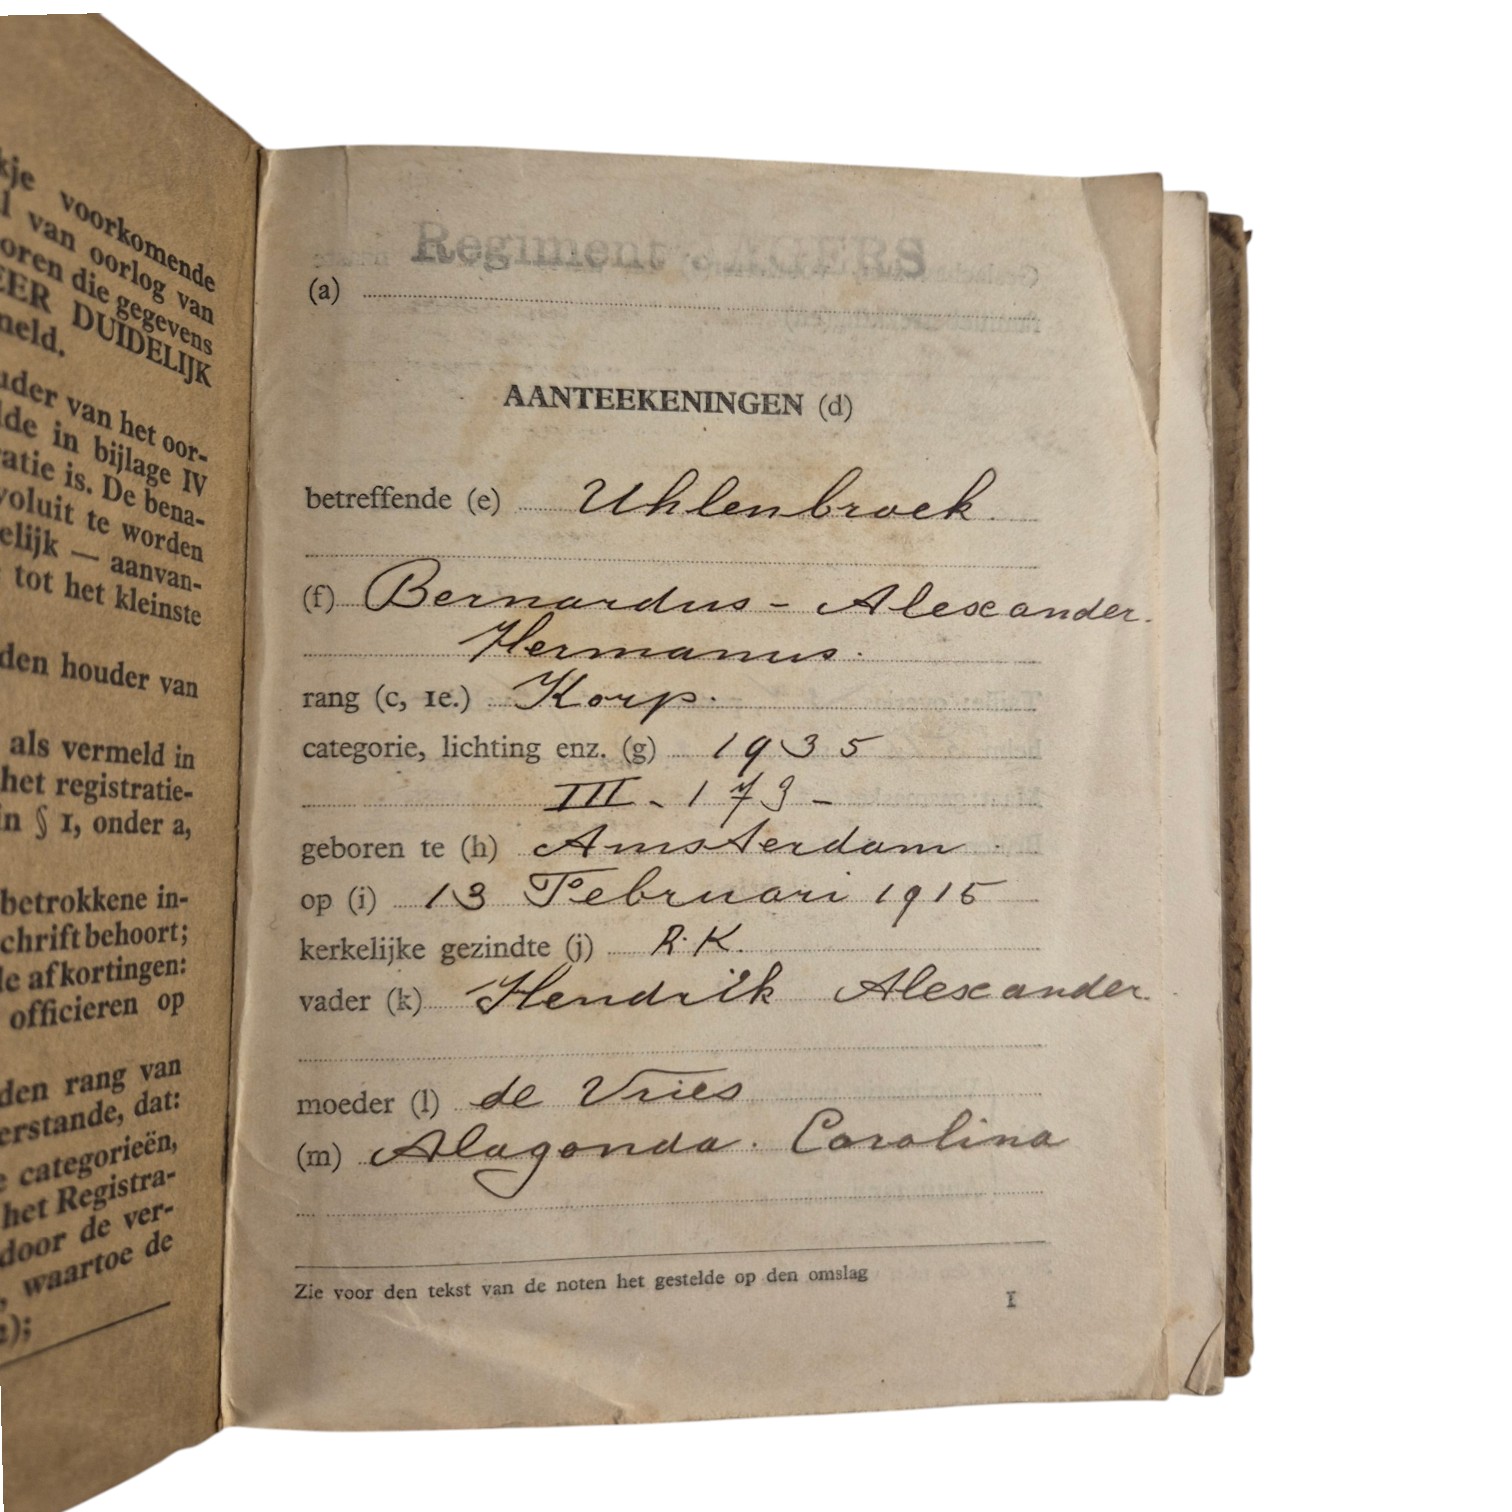 kje voorkomende
l van oorlog van
oren die gegevens
EER DUIDELIJK
meld.
uder van het oor-
lde in bijlage IV
atie is. De bena-
voluit te worden
elijk — aanvan-
tot het kleinste
den houder van
als vermeld in
het registratie-
in § 1, onder a,
betrokkene in-
schrift behoort;
de afkortingen:
officieren op
den rang van
erstande, dat:
e categorieën,
het Registra-
door de ver-
, waartoe de
);
Regiment JAGERS
(a)
AANTEEKENINGEN (d)
betreffende (e) Uhlenbroek.
(f) Bernardus - Alexander.
Hermanus.
rang (c, 1e.) Korp.
categorie, lichting enz. (g) 1935
III - 173 -
geboren te (h) Amsterdam
op (i) 13 Februari 1915
kerkelijke gezindte (j) R.K.
vader (k) Hendrik Alexander.
moeder (l) de Vries
(m) Alagonda. Carolina
Zie voor den tekst van de noten het gestelde op den omslag
1